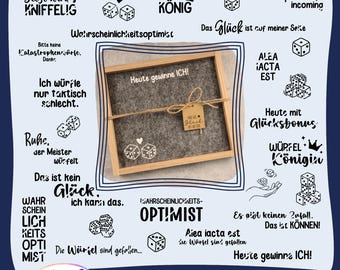 KNIFFELIG
KÖNIG
incoming
Das Glück ist auf meiner Seite
Wahrscheinlichkeitsoptimist
Bitte keine
Katastrophenwürfe.
Danke.
ALEA
IACTA
EST
Heute gewinne ICH!
Ich würfle
nur taktisch
schlecht.
Heute mit
Glücksbonus.
Ruhe,
der Meister
würfelt.
WÜRFEL
Königin
Das ist kein
Glück,
ich kann das.
WAHRSCHEINLICHKEITS-
OPTIMIST
WAHR
SCHEIN
LICH
KEITS
OPTI
MIST
Es gibt keinen Zufall.
Das ist KÖNNEN!
Alea iacta est
Die Würfel sind gefallen
Die Würfel sind gefallen...
Heute gewinne ICH!